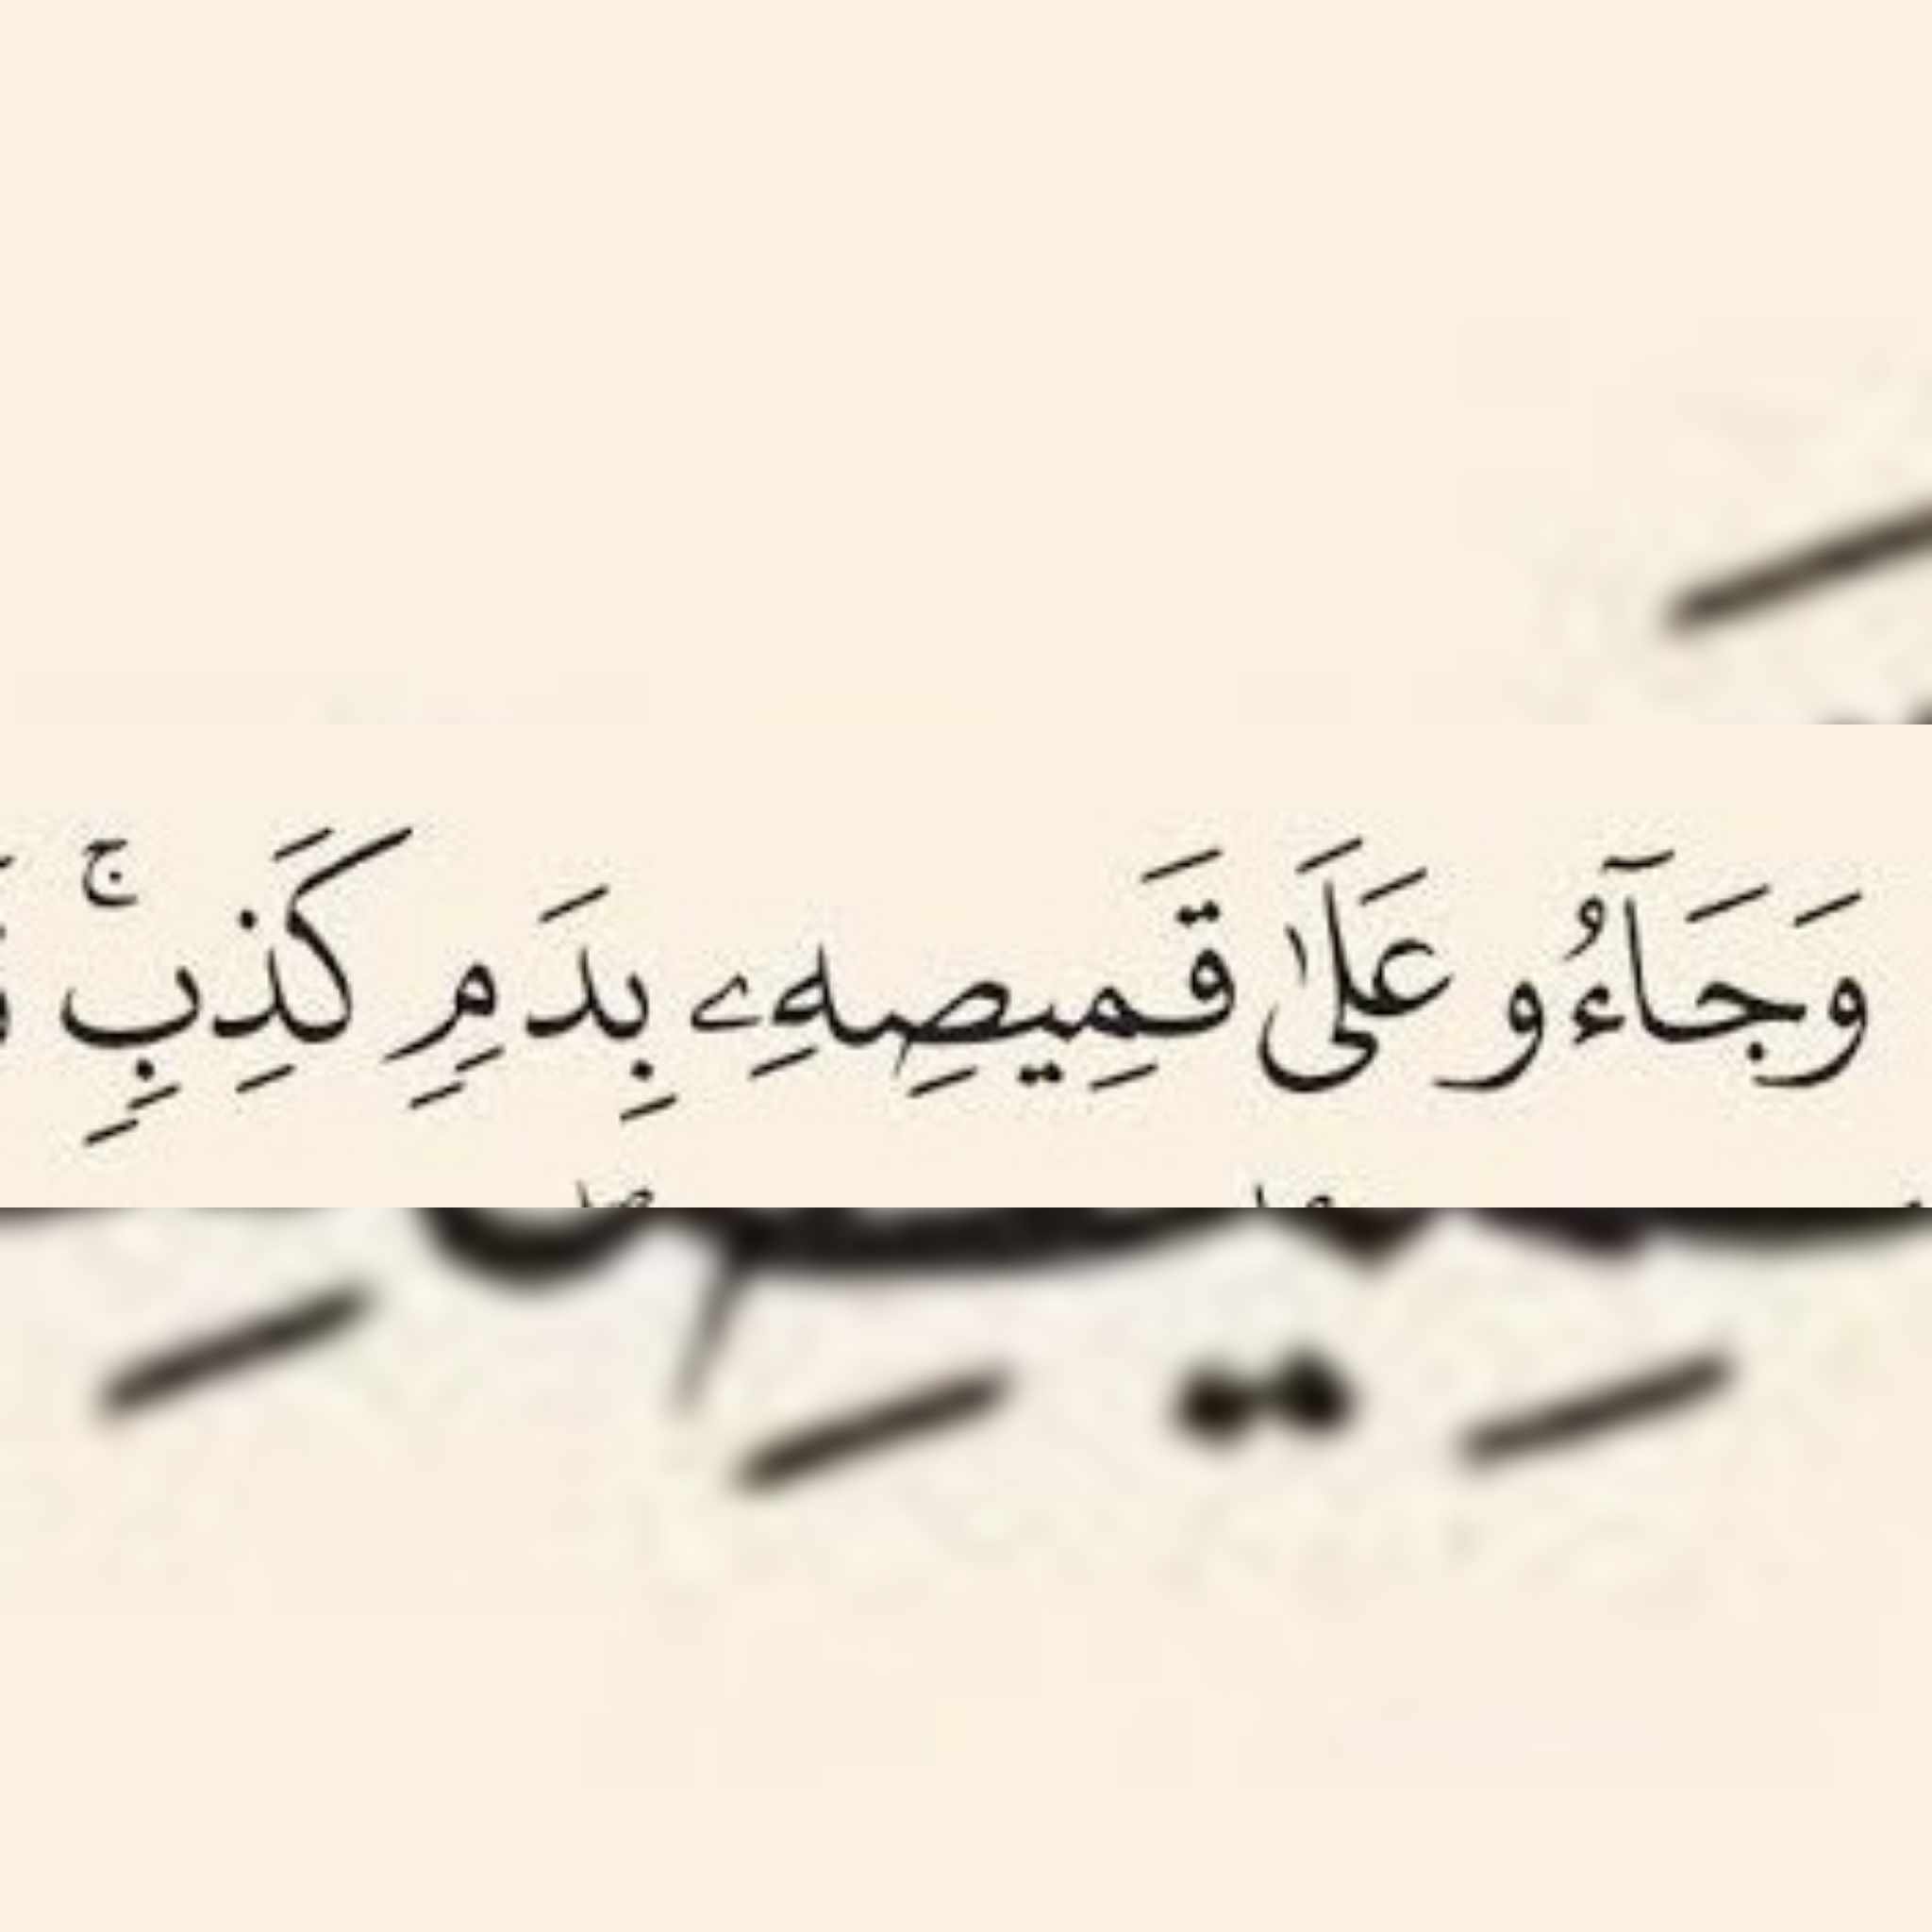 وَجَآءُو عَلَىٰ قَمِيصِهِۦ بِدَمٍ كَذِبٍ ۚ